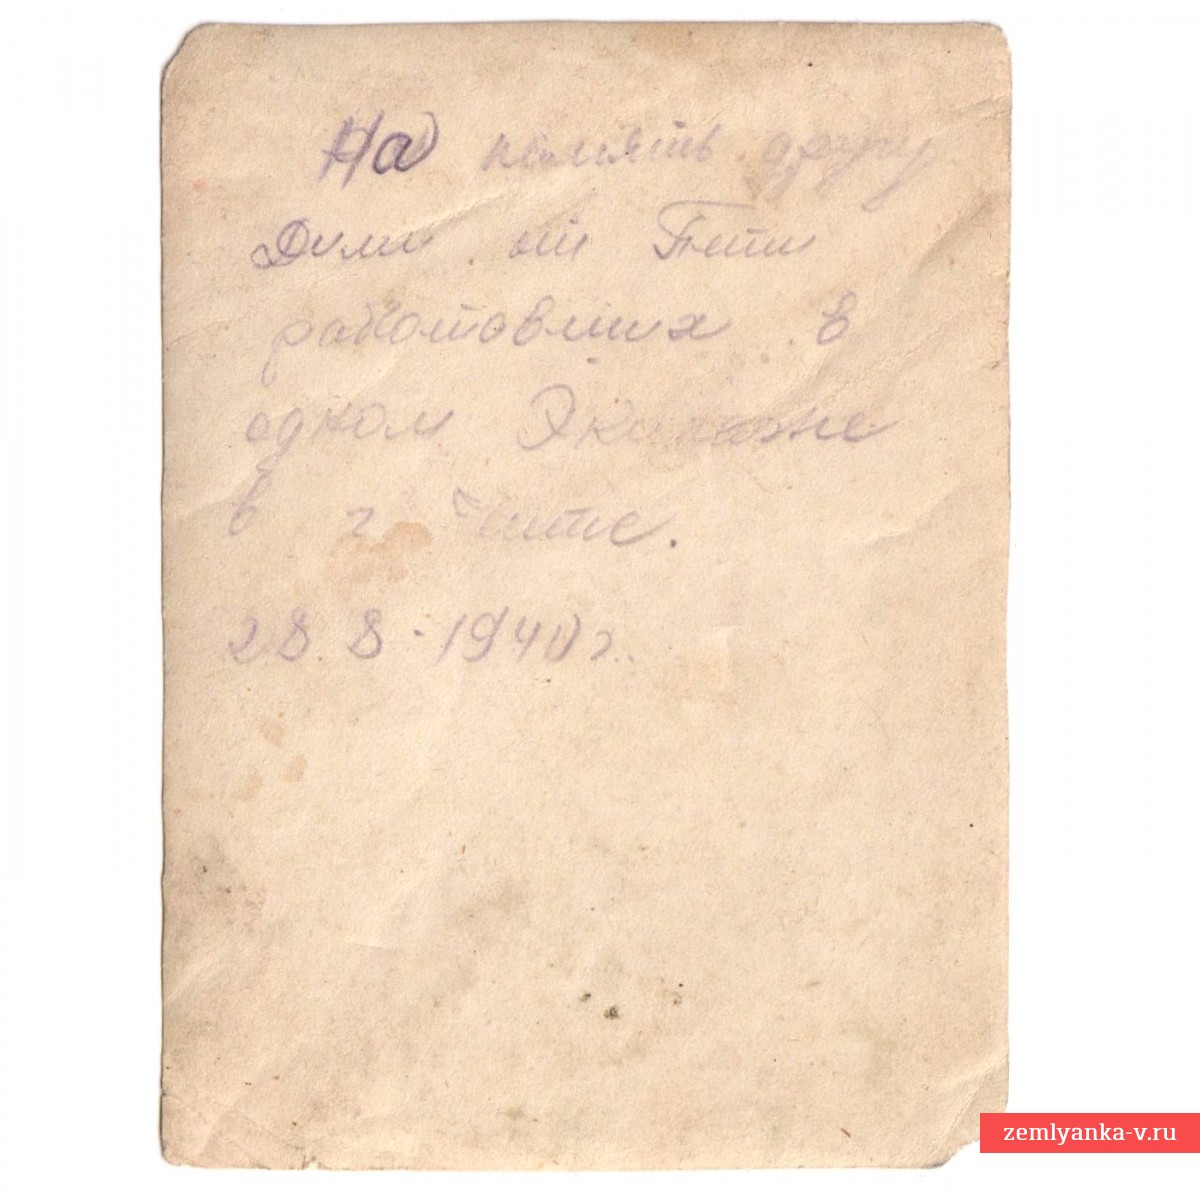 На память другу
Димы от Пети
работавших в
одном Экипаже
в г Чите.
28.8.1940 г.
zemlyanka-v.ru